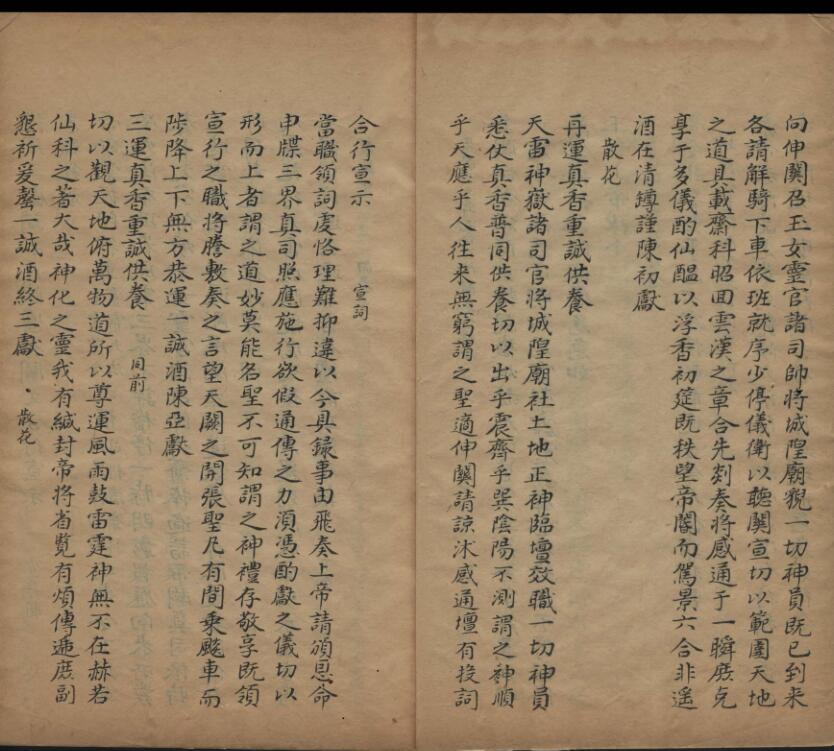 向伸関召玉女靈官諸司帥將城隍廟貌一切神員既已到来
各請解騎下車依班就序少停儀衛以聽関宣切以範圍天地
之道具載齋科昭回雲漢之章合先剡奏將感通于一瞬庻克
享于多儀酌仙醞以浮香初筵既秩望帝閽而駕景六合非遥
酒在清罇謹陳初獻
散花
再運真香重誠供養
天雷神嶽諸司官將城隍廟社土地正神臨壇效職一切神員
悉仗真香普同供養切以出乎震齊乎巽陰陽不測謂之神順
乎天應乎人往来無窮謂之聖適伸関請諒沐感通壇有投詞
合行宣示 宣詞
當職領詞虔恪理難抑違以今具録事由飛奏上帝請頒恩命
申牒三界真司照應施行欲假通傳之力湏憑酌獻之儀切以
形而上者謂之道妙莫能名聖不可知謂之神禮存敬享既領
宣行之職將謄敷奏之言望天闕之開張聖凡有間乗飈車而
陟降上下無方恭運一誠酒陳亞獻
三運真香重誠供養 同前
切以觀天地俯萬物道所以尊運風雨鼓雷霆神無不在赫若
仙科之著大哉神化之靈我有緘封帝將省覧有煩傳逓庻副
懇祈爰罄一誠酒終三獻 散花